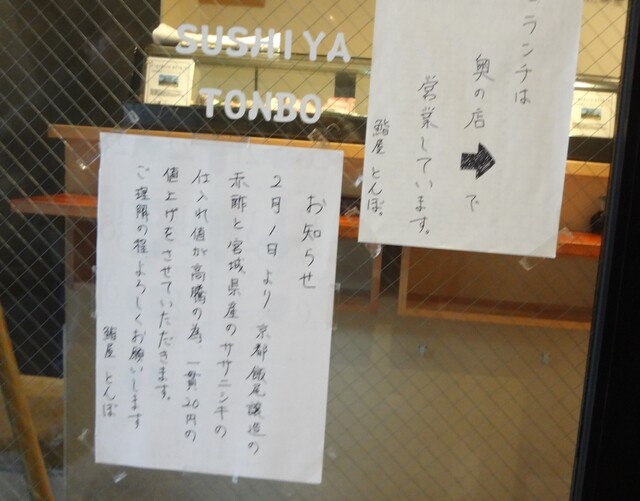 SUSHIYA
TONBO
ランチは
奥の店➡で
営業しています。
鮨屋 とんぼ
お知らせ
2月1日より、京都飯尾醸造の
赤酢と宮城県産のササニシキの
仕入れ値が高騰の為、一貫20円の
値上げをさせていただきます。
ご理解の程よろしくお願いします
鮨屋 とんぼ